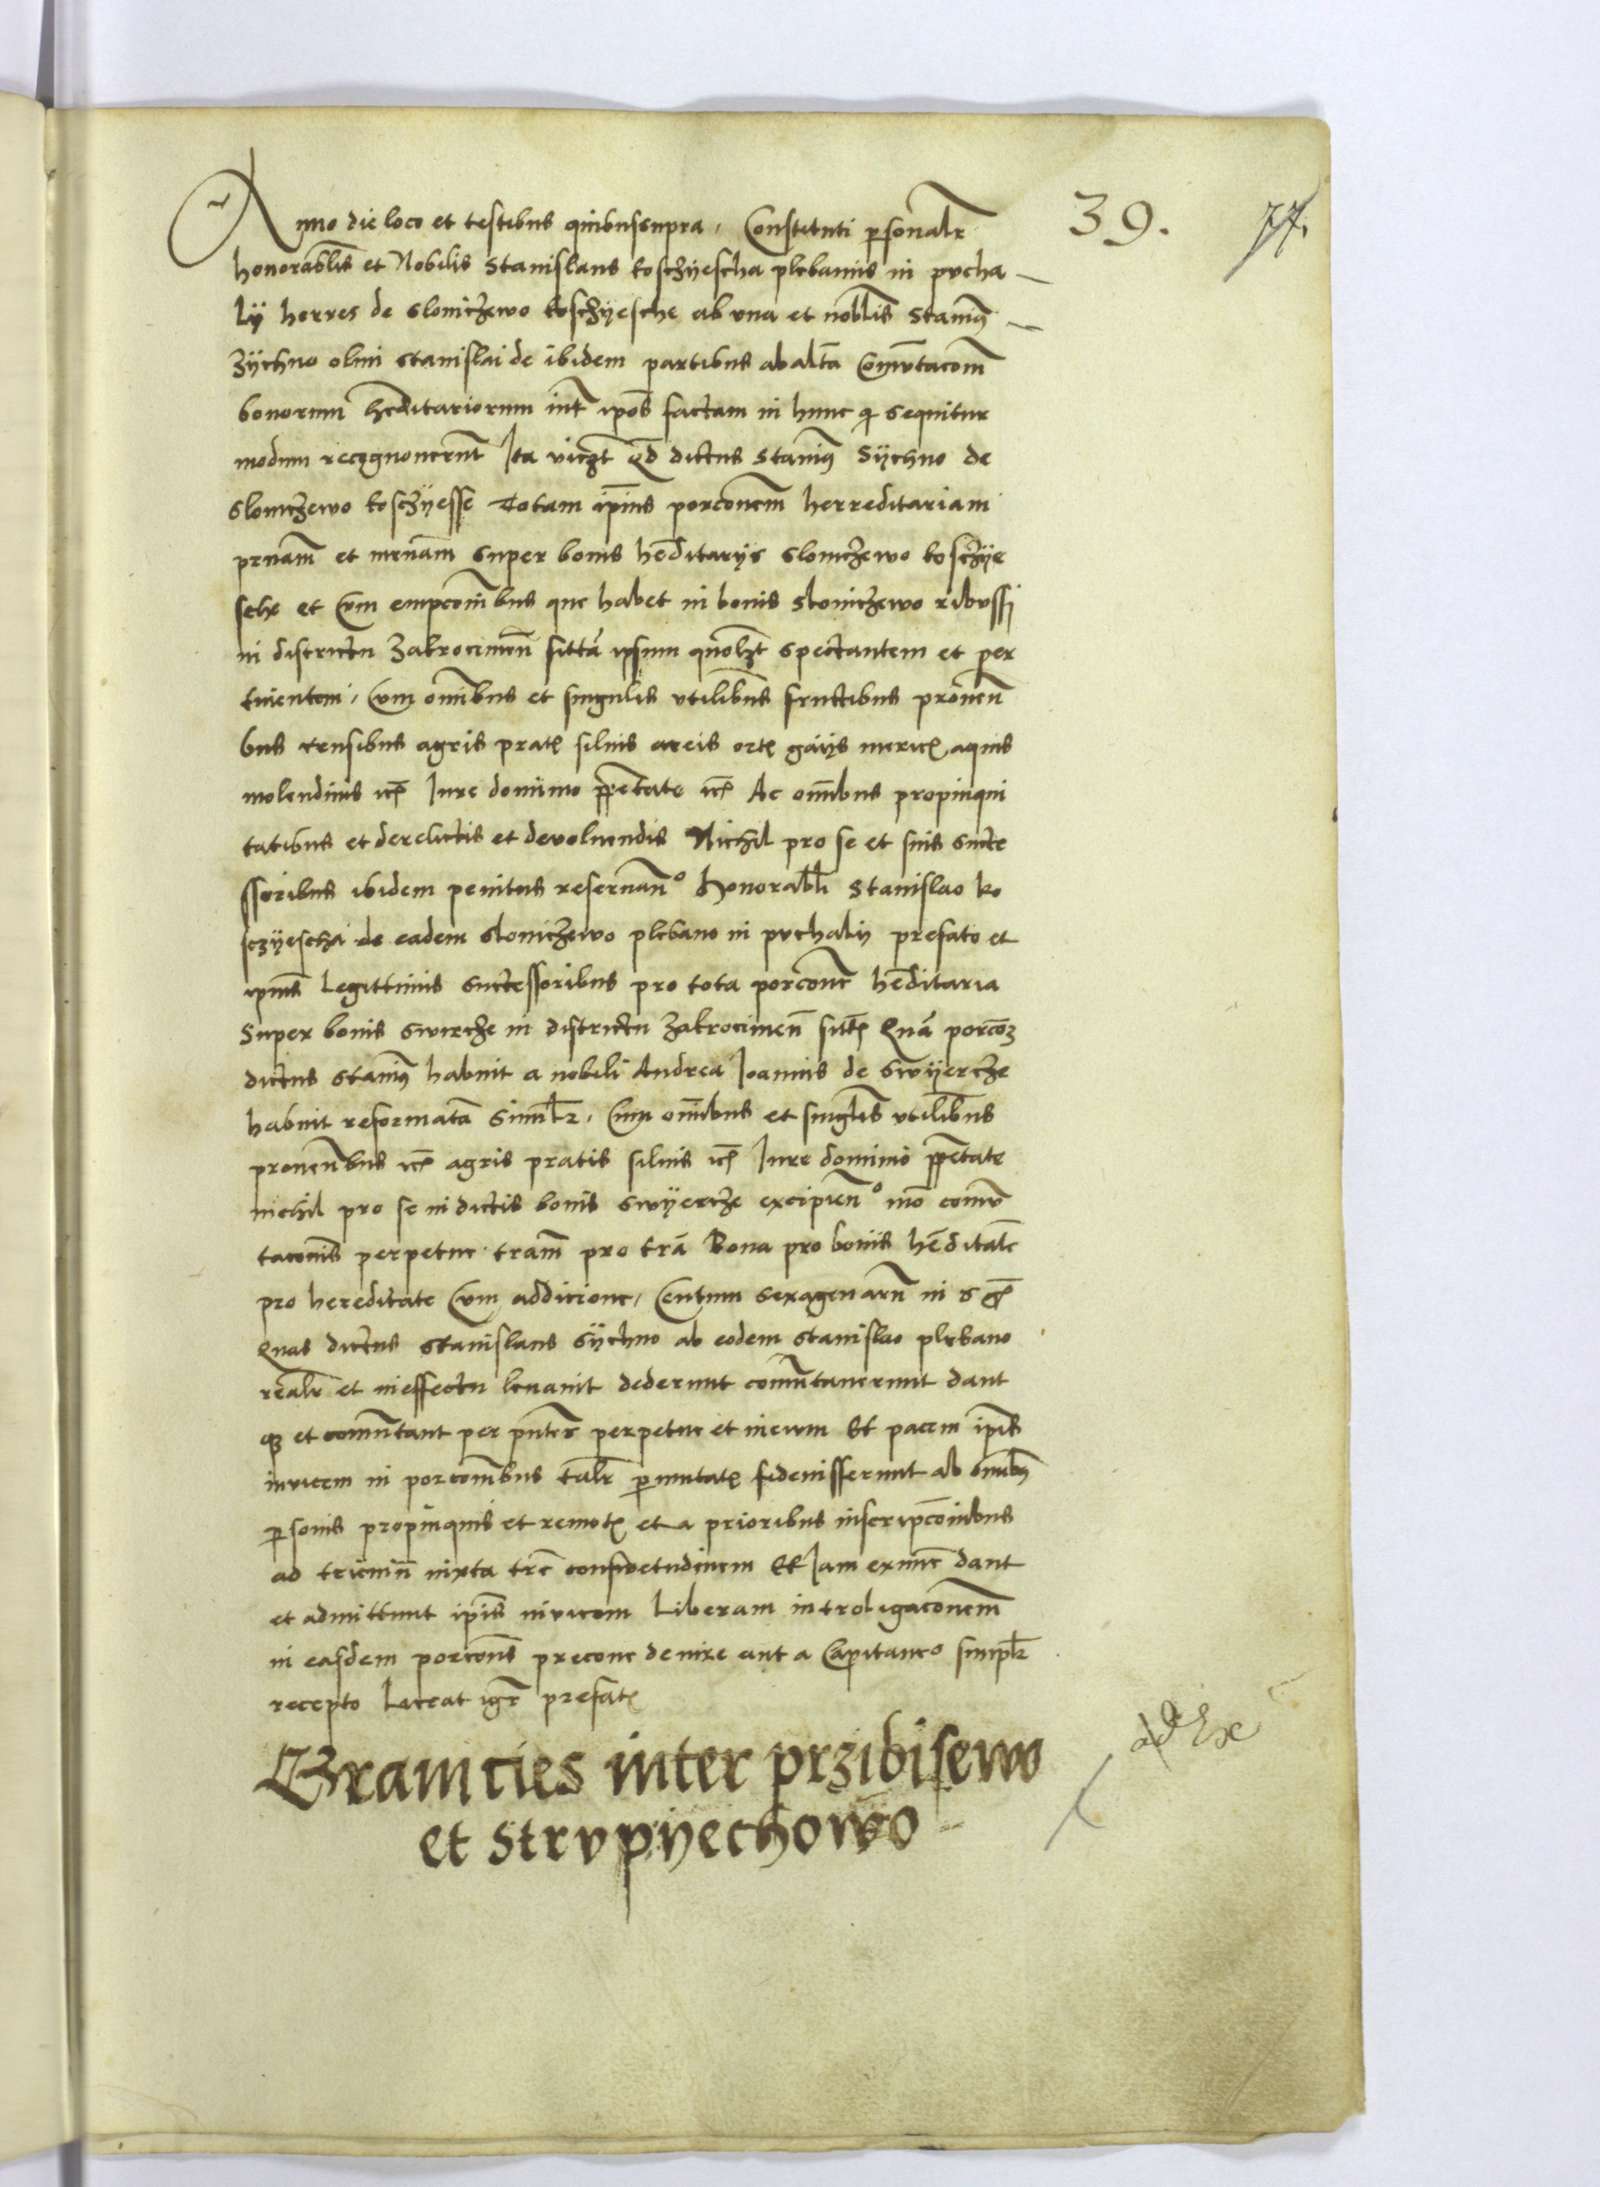 39. 77.
Anno die loco et testibus quibussupra, Constituti p̱sonalr̃
honorabl̃is et Nobilis Stanislaus koschyescha plebanus in pucha
ly herres de slomczewo koschyesche ab una et nobl̃is Stanisꝰ
Zychno olim Stanislai de ibidem partibus ab alt̃a Com̃utacoñm
bonorum heditariorum int̃ ip̃os factam in hunc qi sequitur
modum recognouerunt Ita vicꝫt qd̃ dictus Stanisꝰ Sychno de
slomczewo koschyesse Totam ip̃ius porc̃onem herreditariam
prnam̃ et mrnam̃ super bonis heditarys slomczewo koschye
sche et Cum empcoñibus que habet in bonis slomczewo ribussi
in districtu Zakrocimeñ sittã ipsum quol̃ꝫt spectantem et per
tinentem, Cum omibus et singulis utilibus fructibus prouen̄
bus censibus agris prat̃ siluis areis ort̃ gays meric̃ aquis
molendinis ect̃ Iure dominio ꝓp̃etate ect̃ Ac om̃ibus propinqui
tatibus et derelictis et devoluendis Nichil pro se et suis succe
ssoribus ibidem penitus reseruanº honorabl̃i Stanislao ko
sczyescha de eadem slomczewo plebano in puchaly prefato et
ipius Legittimis successoribus pro tota porc̃one heditaria
Super bonis swircze in districtu zakrocimeñ sitt̃ Quã porcoꝫ
dictus Stanisꝰ habuit a nobili Andrea Ioannis de Swyercze
habuit reformatã Simil̃r, Cum om̃ibus et singl̃is utilibus
prouen̄bus ect̃ agris pratis siluis ect̃ Iure dominio ꝓp̃etate
nichil pro se in dictis bonis swyercze excipienº mõ comu
tacoñis perpetue tram̃ pro trã Bona pro bonis heditate
pro hereditate Cum addicione, Centum sexagenarũ in s gr̃
Quas dictus Stanislaus Sychno ab eodem Stanislao plebano
realr̃ et in effectu leuauit dederunt comũtauerunt dant
qꝫ et comũtant per pñtes perpetue et in ewm Et pacem ip̃is
invicem in porcoñibus talr̃ p̱mutat̃ fideiusserunt ab omibꝰ
p̱sonis propinquis et remot̃ et a prioribus inscripcoñibus
ad trieniũ iuxta trẽ consuetudinem Et Iam exnunc dant
et admittunt ip̃is invicem Liberam introligacoñem
in easdem porcoñes precone de iure aut a Capitaneo simpl̃r
recepto Liceat igr̃ prefat̃
Granities inter przibisewo
et Strvpyechowo